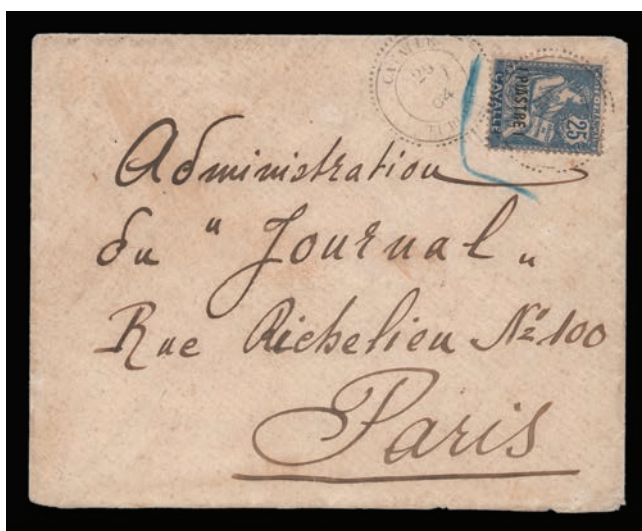 CAVALLE
04
25
1 PIASTRE 1
CAVALLE
Administration
du "Journal"
Rue Richelieu Nº 100
Paris